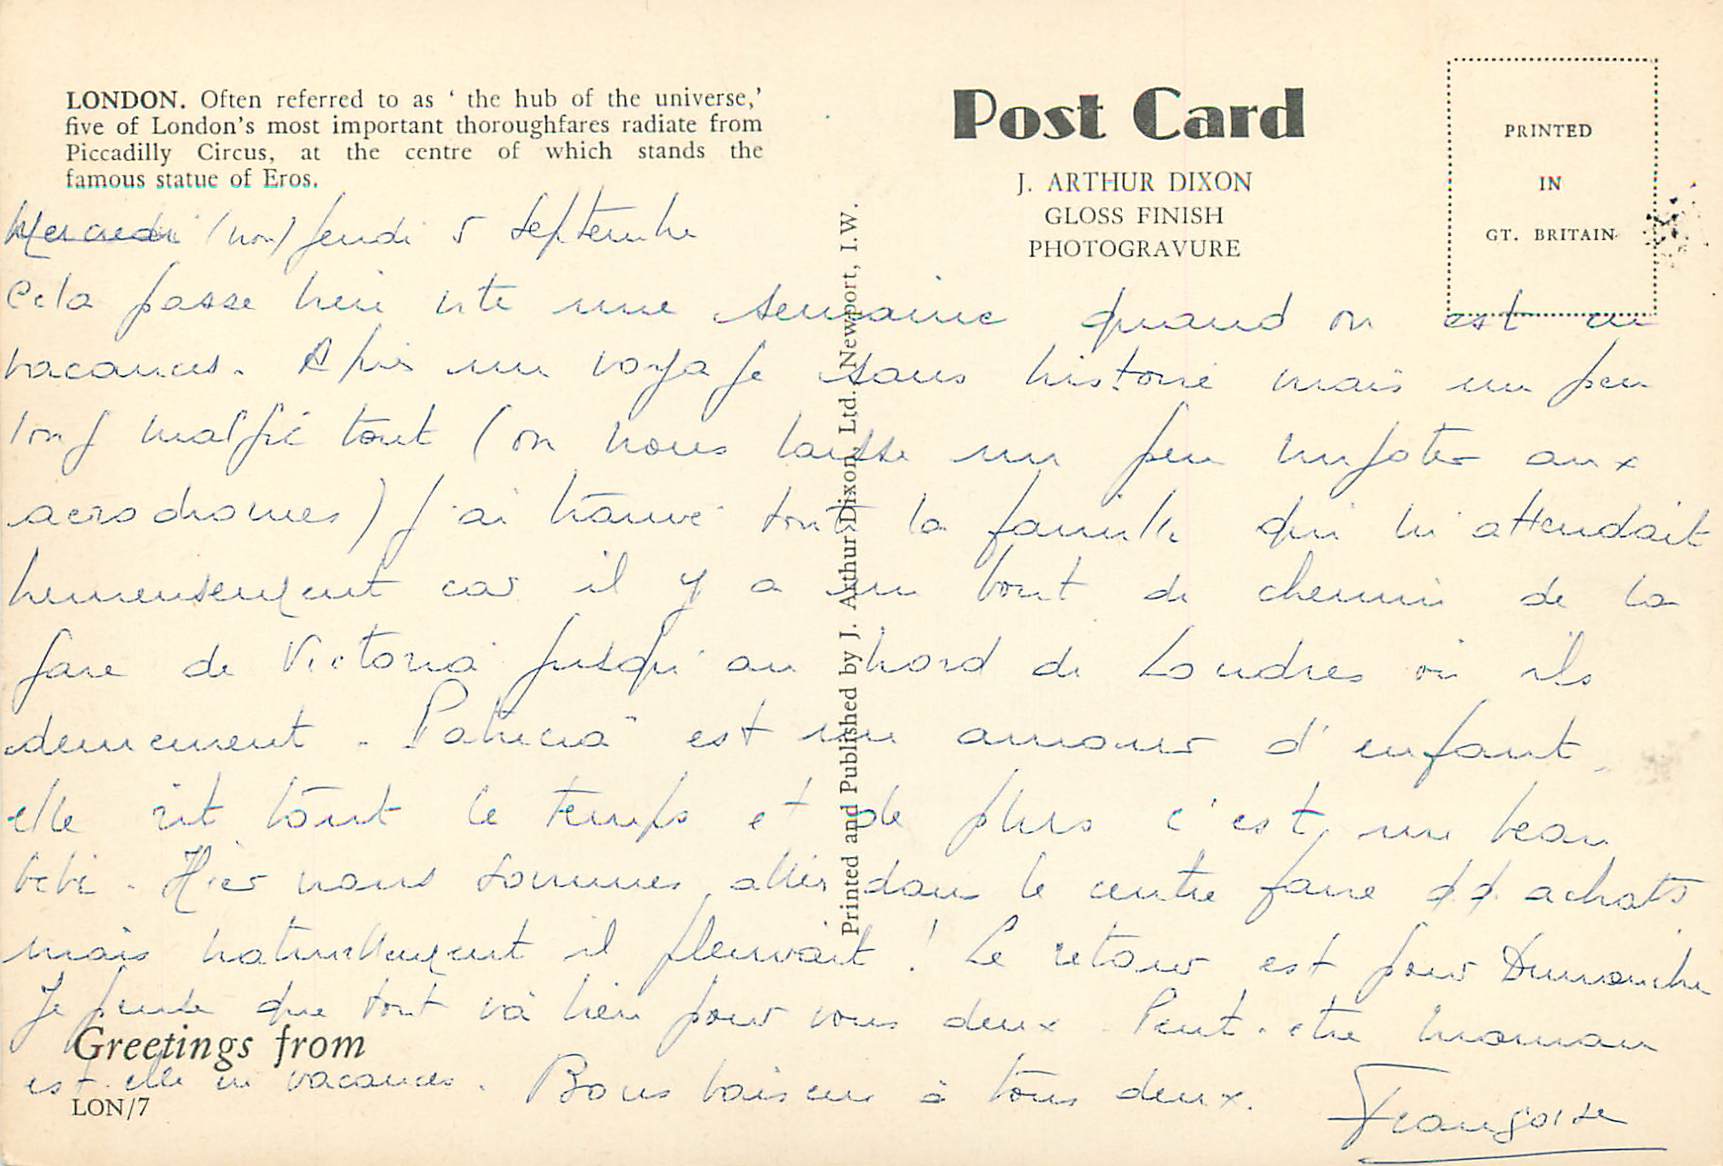 LONDON. Often referred to as ‘ the hub of the universe,’
five of London’s most important thoroughfares radiate from
Piccadilly Circus, at the centre of which stands the
famous statue of Eros.
Post Card
J. ARTHUR DIXON
GLOSS FINISH
PHOTOGRAVURE
PRINTED
IN
GT. BRITAIN
Printed and Published by J. Arthur Dixon Ltd. Newport, I.W.
Mercredi (non) Jeudi 5 Septembre
Cela passe bien vite une semaine quand on est en
vacances. Après un voyage sans histoire mais un peu
long malgré tout (on nous laisse un peu mijoter aux
aérodromes) j'ai trouvé toute la famille qui m'attendait
heureusement car il y a un bout de chemin de la
gare de Victoria jusqu'au bord de Londres où ils
demeurent. Patricia est un amour d'enfant.
elle rit tout le temps et de plus c'est un beau
bébé. Hier nous sommes allés dans le centre faire qq achats
mais naturellement il pleuvait ! Le retour est pour Dimanche
Je pense que tout va bien pour vous deux. Peut-être maman
est-elle en vacances. Bons baisers à tous deux.
Françoise
Greetings from
LON/7